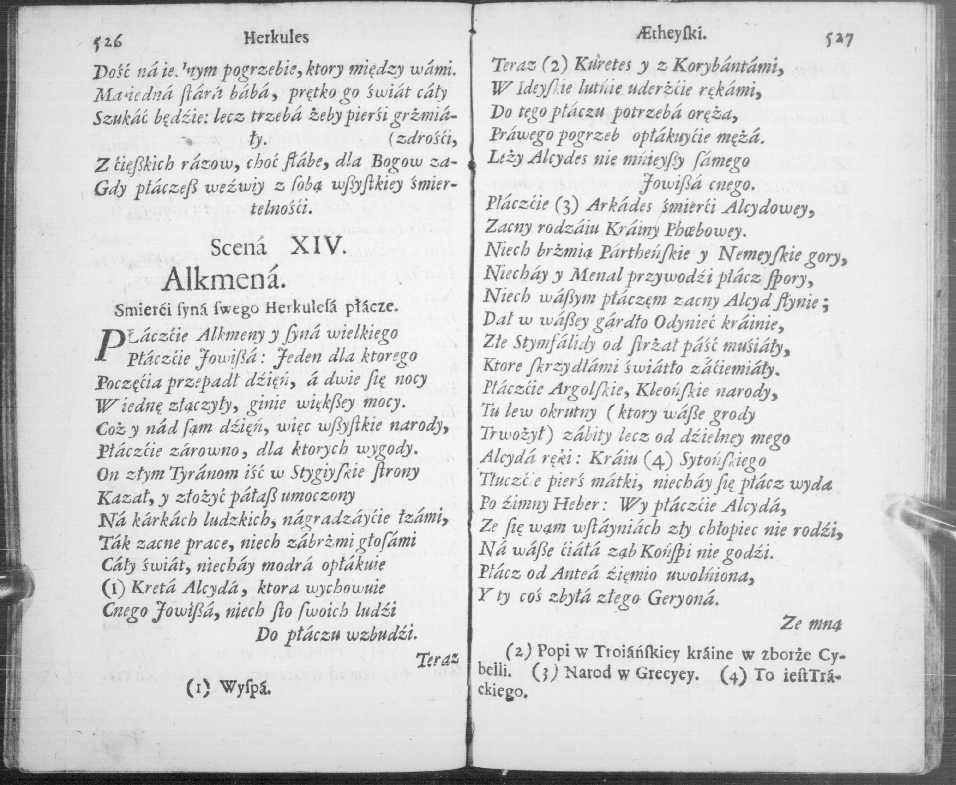 526 Herkules
Dość ná ie. nym pogrzebie, ktory między wámi.
Má iedná ſtárá bábá, prętko go świát cáły
Szukáć będźie: lecz trzebá żeby pierśi grżmiá-
ły. (zdrośći,
Z ćięſzkich rázow, choć ſłábe, dla Bogow za-
Gdy płáczeß weźwiy z ſobą wßyſtkiey śmier-
telnośći.
Scená XIV.
Alkmená.
Smierći ſyná ſwego Herkuleſá płácze.
PŁáczćie Alkmeny y ſyná wielkiego
Płáczćie Jowißá: Jeden dla ktorego
Poczęćia przepadł dźięń, á dwie ſię nocy
W iednę złączyły, ginie więkßey mocy.
Coż y nád ſąm dźięń, więc wßyſtkie narody,
Płáczćie zárowno, dla ktorych wygody.
On złym Tyránom iść w Stygiyſkie ſtrony
Kazał, y złożyć páłaß umoczony
Ná kárkách ludzkich, nágradzáyćie łzámi,
Ták zacne prace, niech zábrżmi głoſámi
Cáły świát, niecháy modrá opłákuie
(1) Kretá Alcydá, ktora wychowuie
Cnego Jowißá, niech ſto ſwoich ludźi
Do płáczu wzbudźi.
Teraz
(1) Wyſpá.
Ætheyſki. 527
Teraz (2) Kuretes y z Korybántámi,
W Ideyſkie lutńie uderźćie rękámi,
Do tego płáczu potrzebá oręża,
Práwego pogrzeb opłákuyćie mężá.
Leży Alcydes nie mńieyßy ſámego
Jowißá cnego.
Płáczćie (3) Arkádes śmierći Alcydowey,
Zacny rodzáiu Kráiny Phœbowey.
Niech brżmią Pártheńſkie y Nemeyſkie gory,
Niecháy y Menal przywodźi płácz ſpory,
Niech wáßym płáczęm zacny Alcyd ſłynie;
Dał w wáßey gárdło Odynieć kráinie,
Złe Stymfálidy od ſtrżał páść muśiáły,
Ktore ſkrzydłámi świátło záćiemiáły.
Płáczćie Argolſkie, Kleońſkie narody,
Tu lew okrutny (ktory wáße grody
Trwożył) zábity lecz od dźielney mego
Alcydá ręki: Kráiu (4) Sytońſkiego
Tłuczćie pierś mátki, niecháy ſię płácz wyda
Po źimny Heber: Wy płáczćie Alcydá,
Ze ſię wąm wſtáyniách zły chłopiec nie rodźi,
Ná wáße ćiáłá ząb Końſpi nie godźi.
Płácz od Anteá źięmio uwolńiona,
Y ty coś zbyłá złego Geryoná.
Ze mną
(2) Popi w Troiáńſkiey kráine w zborże Cy-
belli. (3) Narod w Grecyey. (4) To ieſt Trá-
ckiego.